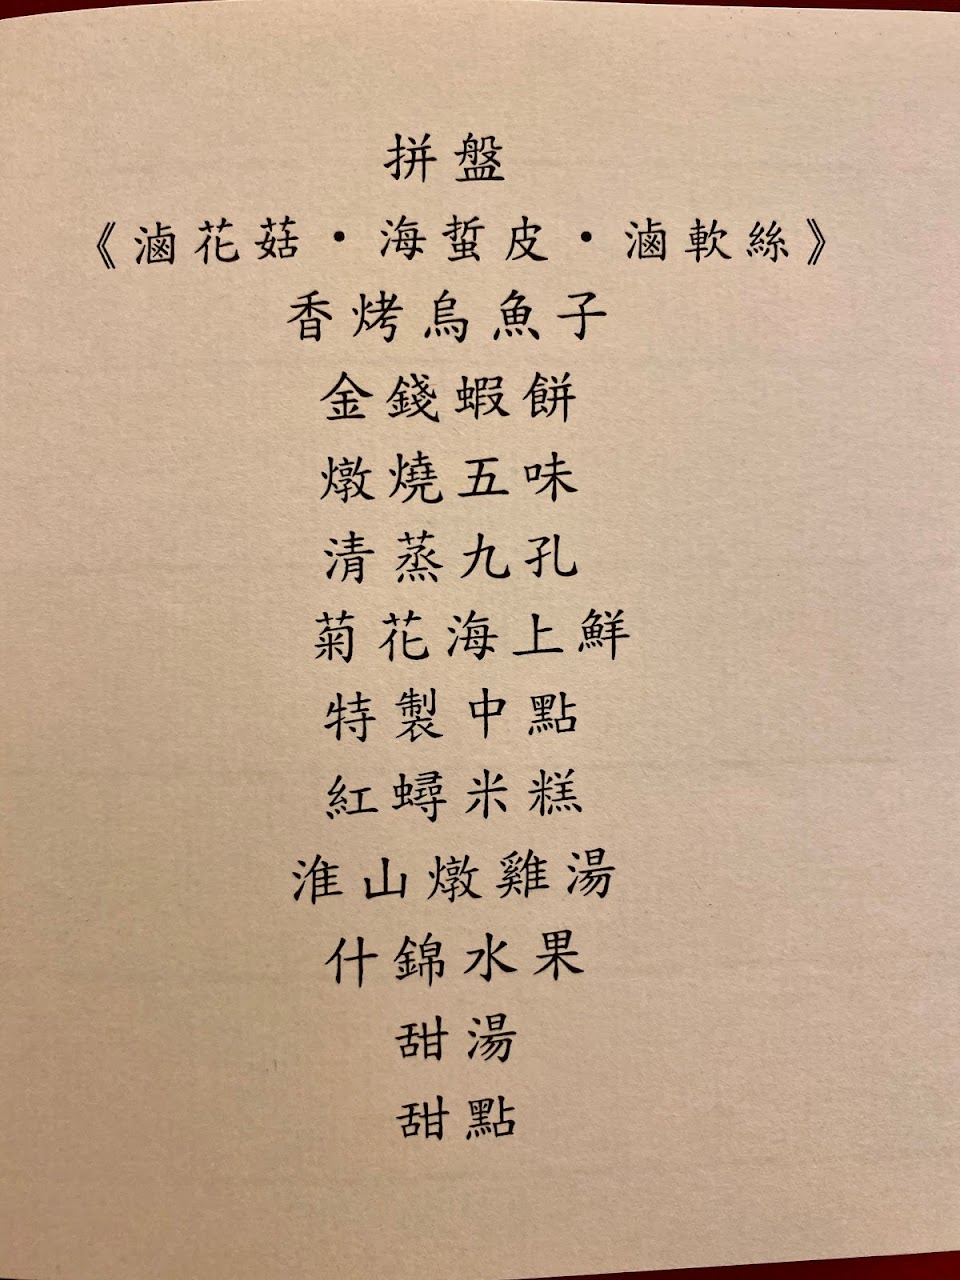 拼盤
《滷花菇・海蜇皮・滷軟絲》
香烤烏魚子
金錢蝦餅
燉燒五味
清蒸九孔
菊花海上鮮
特製中點
紅蟳米糕
淮山燉雞湯
什錦水果
甜湯
甜點